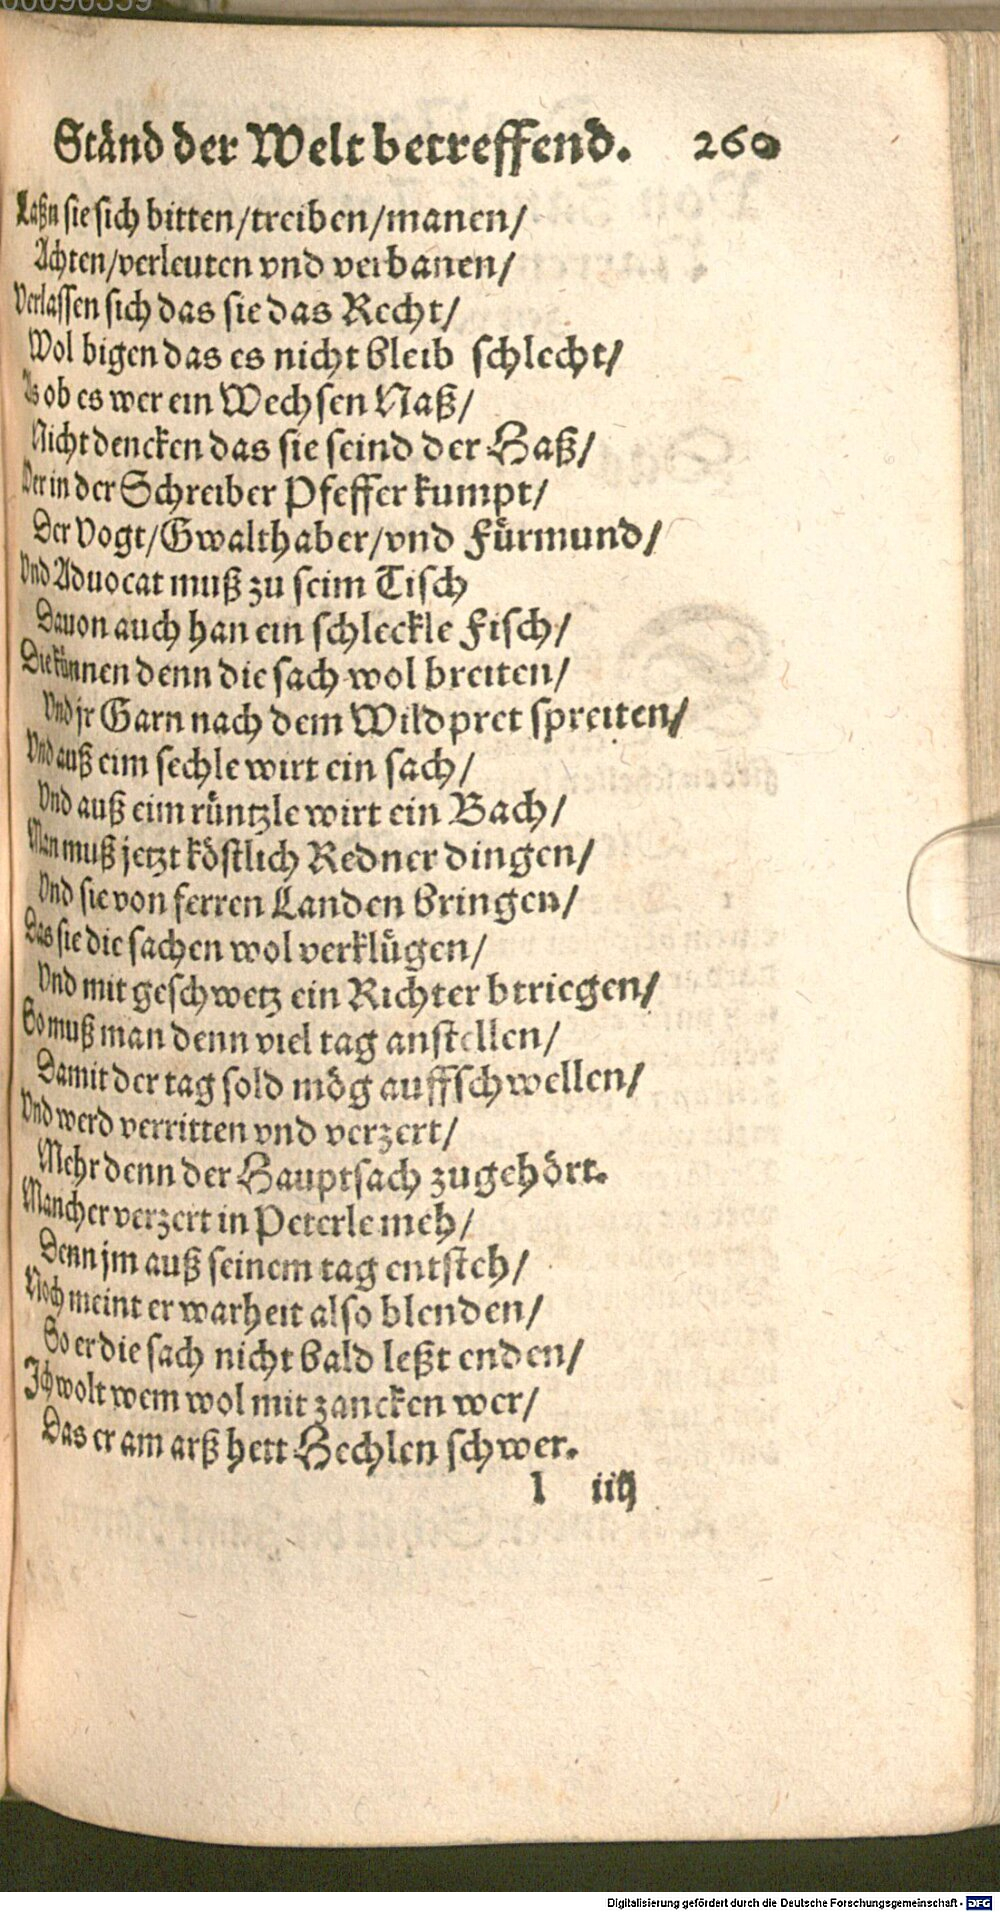 00090359
Ständ der Welt betreffend. 260
Laßn sie sich bitten/treiben/manen/
Achten/verleuten vnd verbanen/
Verlassen sich das sie das Recht/
Wol bigen das es nicht bleib schlecht/
Als ob es wer ein Wechsen Naß/
Nicht dencken das sie seind der Haß/
Der in der Schreiber Pfeffer kumpt/
Der Vogt/Gwalthaber/vnd Fürmund/
Vnd Aduocat muß zu seim Tisch
Dauon auch han ein schleckle Fisch/
Die künnen denn die sach wol breiten/
Vnd jr Garn nach dem Wildpret spreiten/
Vnd auß eim sechle wirt ein sach/
Vnd auß eim rüntzle wirt ein Bach/
Man muß jetzt köstlich Redner dingen/
Vnd sie von ferren Landen bringen/
Das sie die sachen wol verklügen/
Vnd mit geschwetz ein Richter btriegen/
So muß man denn viel tag anstellen/
Damit der tag sold mög auffschwellen/
Vnd werd verritten vnd verzert/
Mehr denn der Hauptsach zugehört.
Mancher verzert in Peterle meh/
Denn jm auß seinem tag entsteh/
Noch meint er warheit also blenden/
So er die sach nicht bald leßt enden/
Ich wolt wem wol mit zancken wer/
Das er am arß hett Hechlen schwer.
l iiij
Digitalisierung gefördert durch die Deutsche Forschungsgemeinschaft - DFG